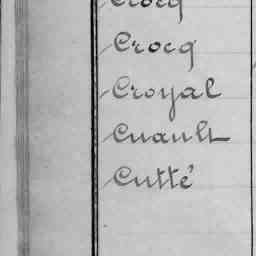 Crocq
Crocq
Croyal
Cuault
Cutté